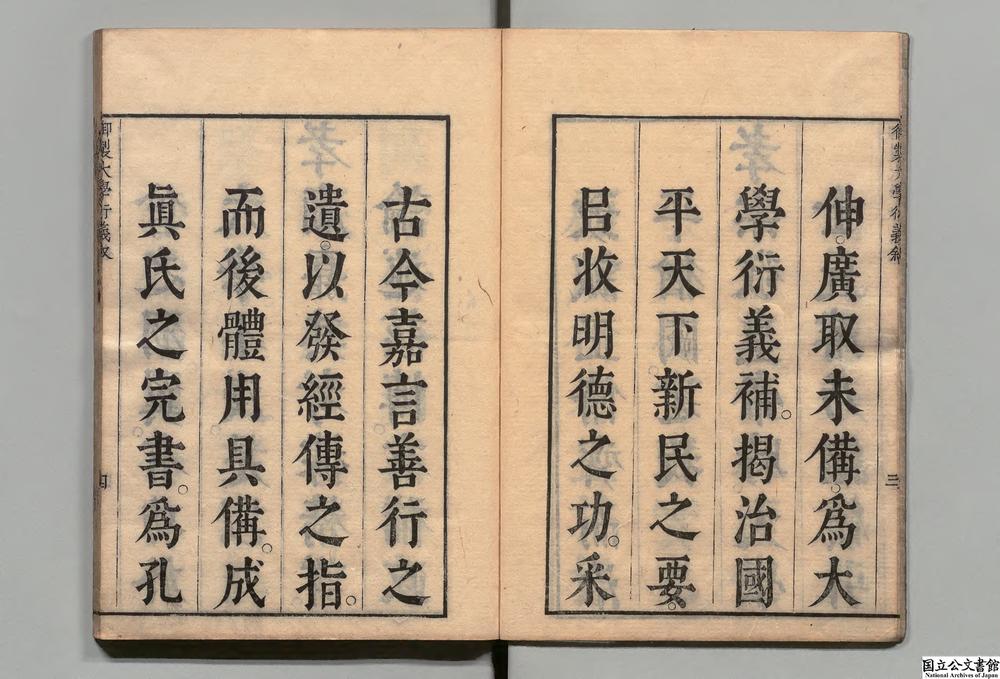 伸廣取未備。爲大
學衍義補。揭治國
平天下。新民之要。
㠯收明德之功。采
古今嘉言善行之
遺。以發經傳之指。
而後體用具備。成
眞氏之完書。爲孔
三
四
国立公文書館
National Archives of Japan